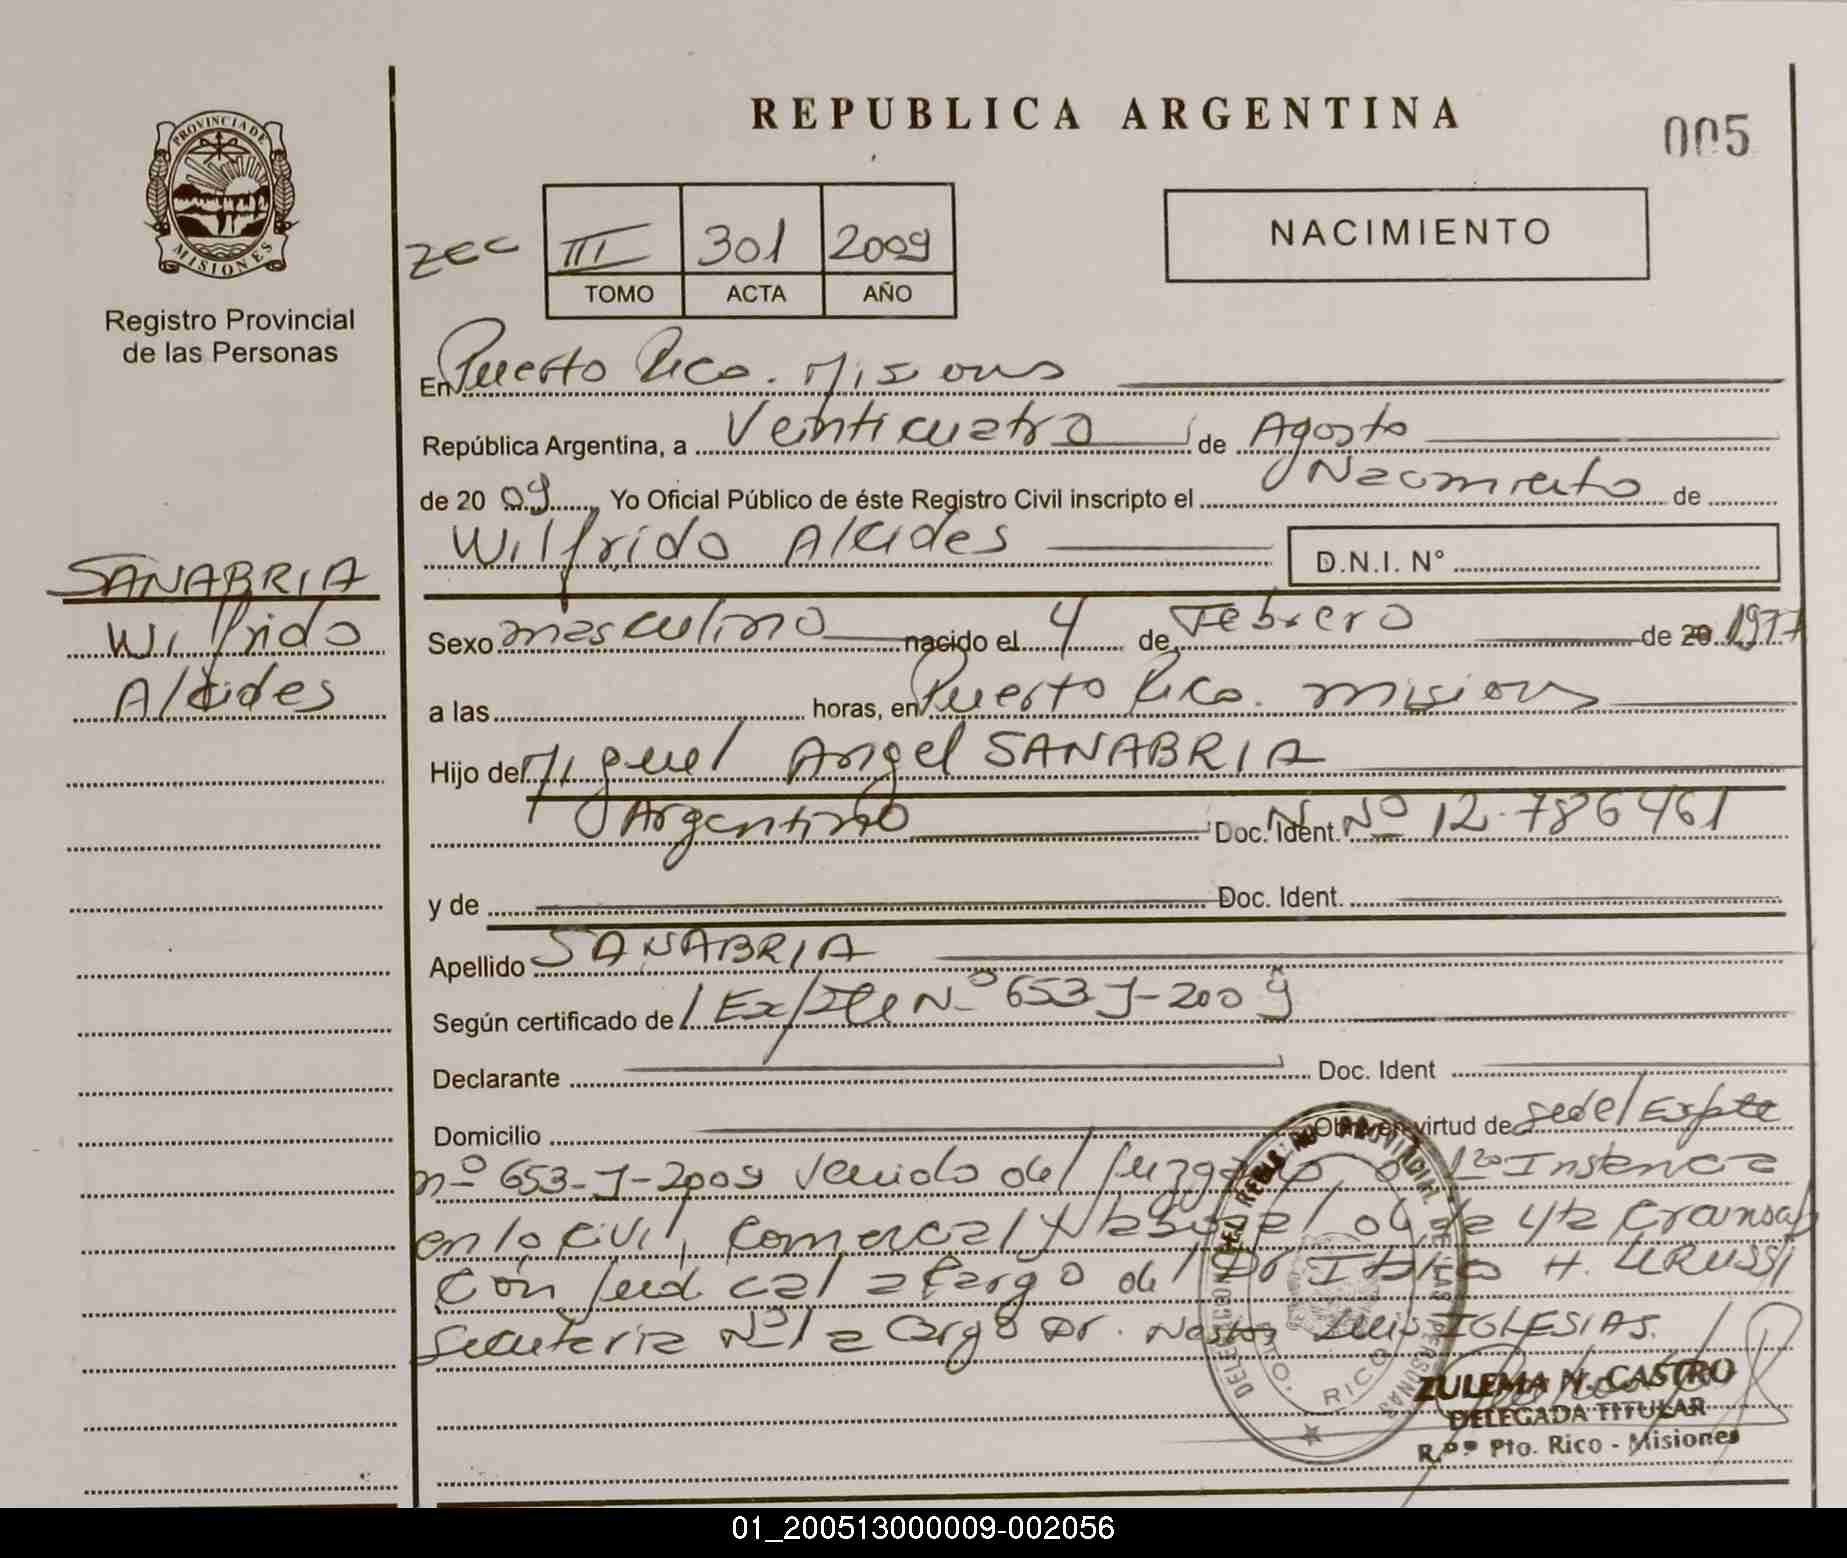 REPUBLICA ARGENTINA
005
PROVINCIA DE
MISIONES
Registro Provincial
de las Personas
III 301 2009
TOMO ACTA AÑO
NACIMIENTO
En Puerto Rico. Misiones
República Argentina, a Veinticuatro de Agosto
de 20 09 Yo Oficial Público de éste Registro Civil inscripto el Nacimiento de
Wilfrido Alcides D.N.I. N°
SANABRIA
Wilfrido
Alcides
Sexo masculino nacido el 4 de Febrero de 20 1977
a las horas, en Puerto Rico. Misiones
Hijo de Miguel Angel SANABRIA
Argentino Doc. Ident. Nº 12.786461
y de Doc. Ident.
Apellido SANABRIA
Según certificado de / Expte Nº 653 J-2009
Declarante Doc. Ident
Domicilio Obra en virtud de del Expte
nº 653-J-2009 venido del Juzgado de 1ra Instancia
en lo Civil, Comercial y Laboral de la 4ta Circunscrip
ción Judicial a cargo del Dr H.
Secretaria Nº1 a cargo Dr. Nestor Luis IGLESIAS.
PTO. RICO
ZULEMA N. CASTRO
DELEGADA TITULAR
R.P.P. Pto. Rico - Misiones
01_200513000009-002056